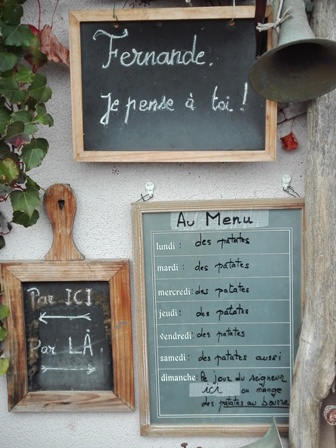 Fernande.
Je pense à toi !
Par ICI
Par LÀ
Au Menu
lundi : des patates
mardi : des patates
mercredi : des patates
jeudi : des patates
vendredi : des patates
samedi : des patates aussi
dimanche : le jour du seigneur
ici on mange
des patates au beurre